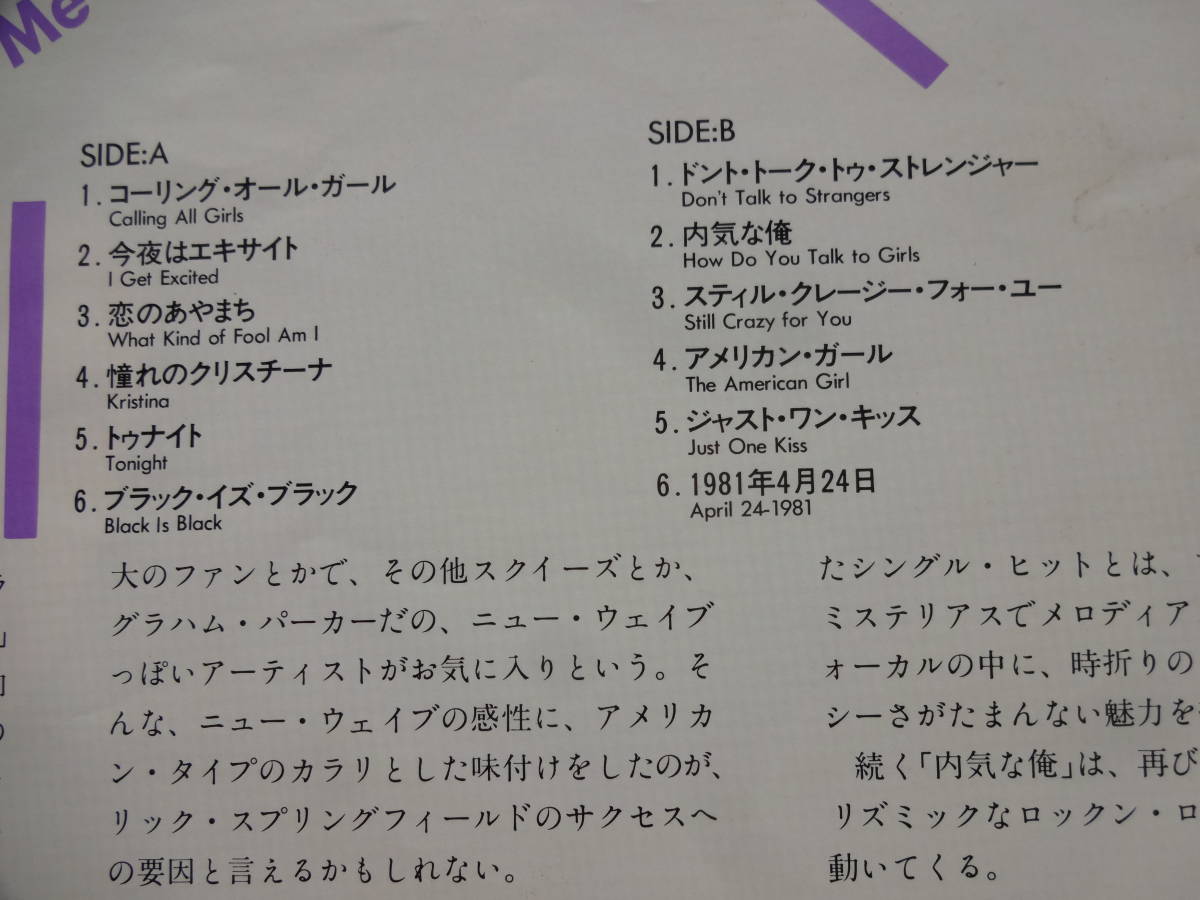 Me
SIDE:A
1.コーリング・オール・ガール
Calling All Girls
2.今夜はエキサイト
I Get Excited
3.恋のあやまち
What Kind of Fool Am I
4.憧れのクリスチーナ
Kristina
5.トゥナイト
Tonight
6.ブラック・イズ・ブラック
Black Is Black
SIDE:B
1.ドント・トーク・トゥ・ストレンジャー
Don't Talk to Strangers
2.内気な俺
How Do You Talk to Girls
3.スティル・クレージー・フォー・ユー
Still Crazy for You
4.アメリカン・ガール
The American Girl
5.ジャスト・ワン・キッス
Just One Kiss
6.1981年4月24日
April 24-1981
大のファンとかで、その他スクイーズとか、
グラハム・パーカーだの、ニュー・ウェイブ
っぽいアーティストがお気に入りという。そ
んな、ニュー・ウェイブの感性に、アメリカ
ン・タイプのカラリとした味付けをしたのが、
リック・スプリングフィールドのサクセスへ
の要因と言えるかもしれない。
たシングル・ヒットとは、
ミステリアスでメロディア
ォーカルの中に、時折りの
シーさがたまんない魅力を
続く「内気な俺」は、再び
リズミックなロックン・ロ
動いてくる。